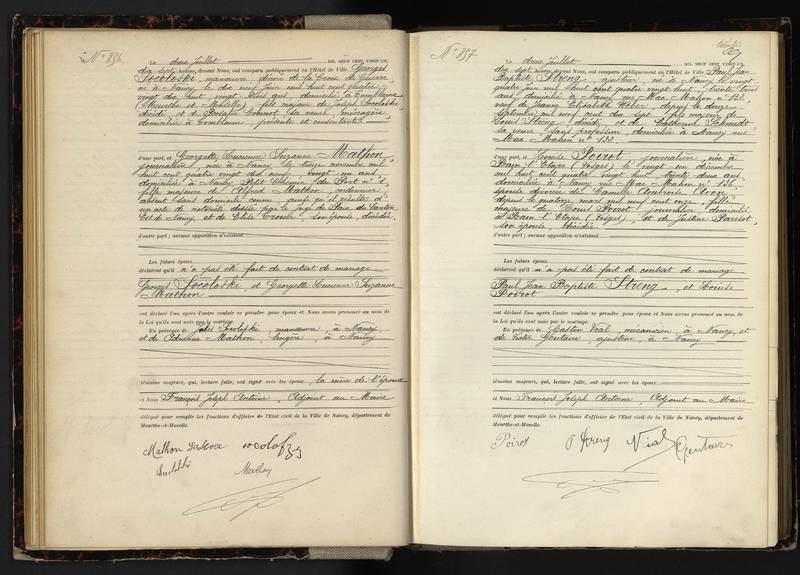 N° 856
Le deux Juillet MIL NEUF CENT VINGT-UN,
dix sept heures, devant Nous, ont comparu publiquement en l'Hôtel de Ville, Georges
Socoloski, manœuvre, décoré de la Croix de Guerre,
né à Nancy le dix neuf Juin mil huit cent quatre
vingt dix huit, vingt trois ans, domicilié à Tomblaine
(Meurthe et Moselle), fils majeur de Joseph Socoloski
décédé et de Rosalie Connot sa veuve, ménagère
domiciliée à Tomblaine, présente et consentante
d'une part, et Georgette Lucienne Suzanne Mathon
journalière, née à Nancy le treize novembre mil
huit cent quatre vingt dix neuf, vingt un ans,
domiciliée à Nancy Petit Chemin du Port n° 4
fille majeure de Alfred Mathon, cordonnier
absent sans domicile connu, ainsi qu'il résulte d'
un acte de notoriété dressé par le Juge de Paix du Canton
Est de Nancy, et de Elise son épouse, décédée.
d'autre part; aucune opposition n'existant
Les futurs époux
déclarent qu'il n'a pas été fait de contrat de mariage
Georges Socoloski et Georgette Lucienne Suzanne
Mathon
ont déclaré l'un après l'autre vouloir se prendre pour époux et Nous avons prononcé au nom de
la Loi qu'ils sont unis par le mariage.
En présence de Socoloski, manœuvre, à Nancy
et de Mathon, lingère, à Nancy
témoins majeurs, qui, lecture faite, ont signé avec les époux, la mère de l'époux
et Nous François Joseph Antoine, Adjoint au Maire
délégué pour remplir les fonctions d'officier de l'État civil de la Ville de Nancy, département de
Meurthe-et-Moselle.
Mathon
Mathon
N° 857
Le deux Juillet MIL NEUF CENT VINGT-UN,
dix sept heures, devant Nous, ont comparu publiquement en l'Hôtel de Ville Paul Jean
Baptiste Streng, ajusteur, né à Nancy le vingt
quatre Juin mil huit cent quatre vingt huit, trente trois
ans, domicilié à Nancy rue Mac Mahon n° 130
veuf de Jeanne Elisabeth Weber, depuis le douze
septembre mil neuf cent dix sept, fils majeur de
Louis Streng, décédé et de Catherine Schmidt
sa veuve, sans profession, domiciliée à Nancy rue
Mac Mahon n° 130.
d'une part, et Louise Poirot journalière, née à
Raon l'Etape (Vosges) le vingt un décembre
mil huit cent quatre vingt huit, trente deux ans,
domiciliée à Nancy rue Mac Mahon n° 136
épouse divorcée de Camille Ambroise
depuis le quatorze mars mil neuf cent onze, fille
majeure de Louis Poirot journalier, domicilié
à Raon l'Etape (Vosges), et de Justine Parisot,
son épouse, décédée.
d'autre part; aucune opposition n'existant
Les futurs époux
déclarent qu'il n'a pas été fait de contrat de mariage
Paul Jean Baptiste Streng, et Louise
Poirot
ont déclaré l'un après l'autre vouloir se prendre pour époux et Nous avons prononcé au nom de
la Loi qu'ils sont unis par le mariage.
En présence de Gaston Vial, mécanicien, à Nancy, et
de Victor, ajusteur, à Nancy
témoins majeurs, qui, lecture faite, ont signé avec les époux
et Nous François Joseph Antoine, Adjoint au Maire
délégué pour remplir les fonctions d'officier de l'État civil de la Ville de Nancy, département de
Meurthe-et-Moselle.
Poirot P Streng Vial